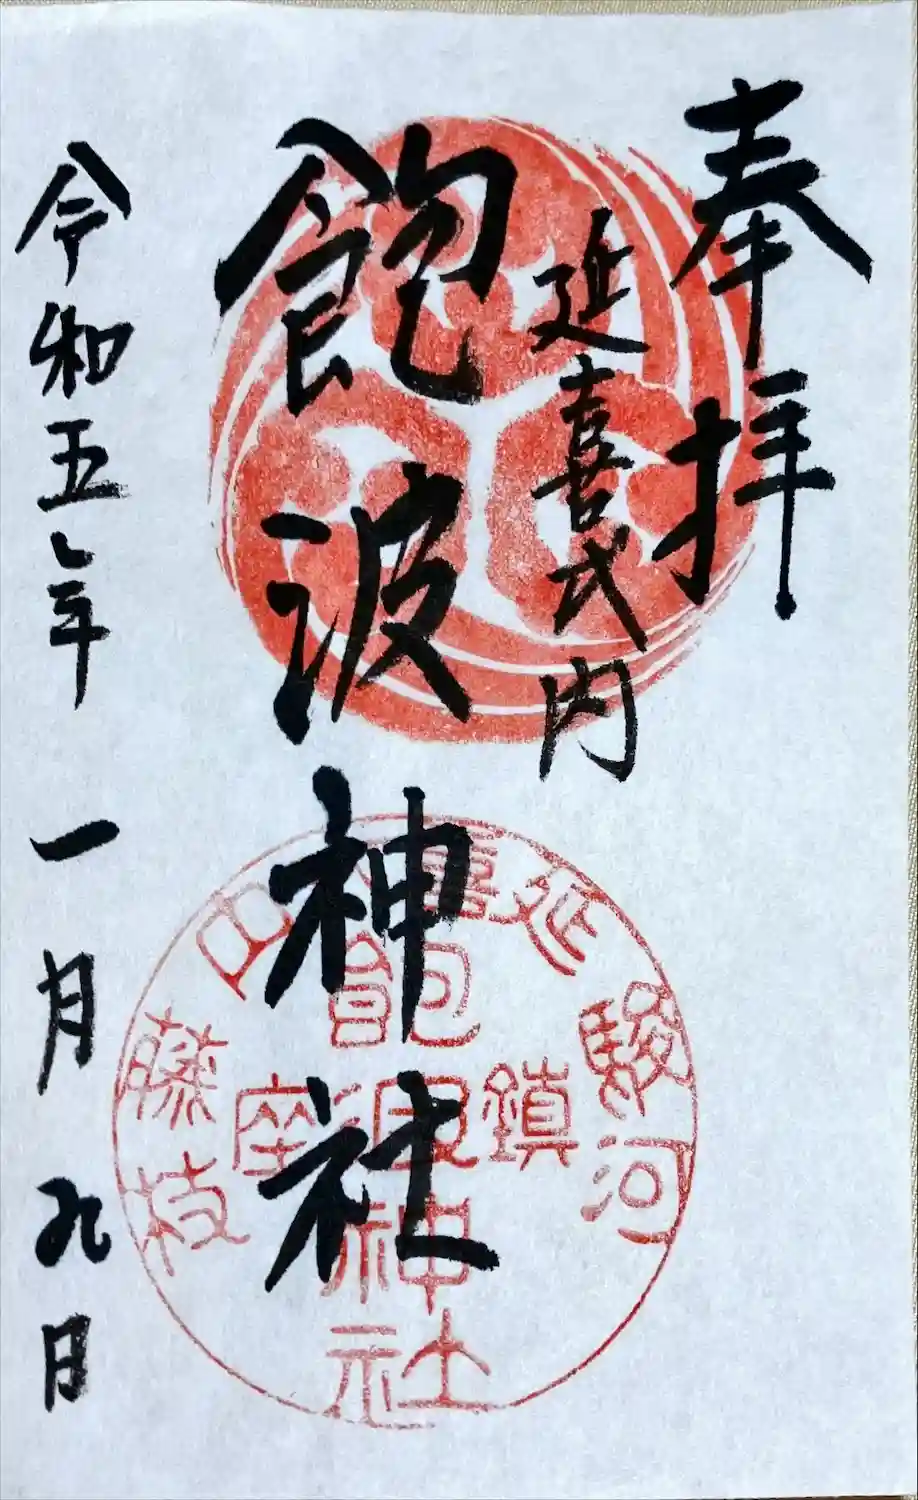 奉拝
延喜式内
飽波神社
令和五年一月九日
駿河
延喜
山
藤枝
鎮座
飽波神社